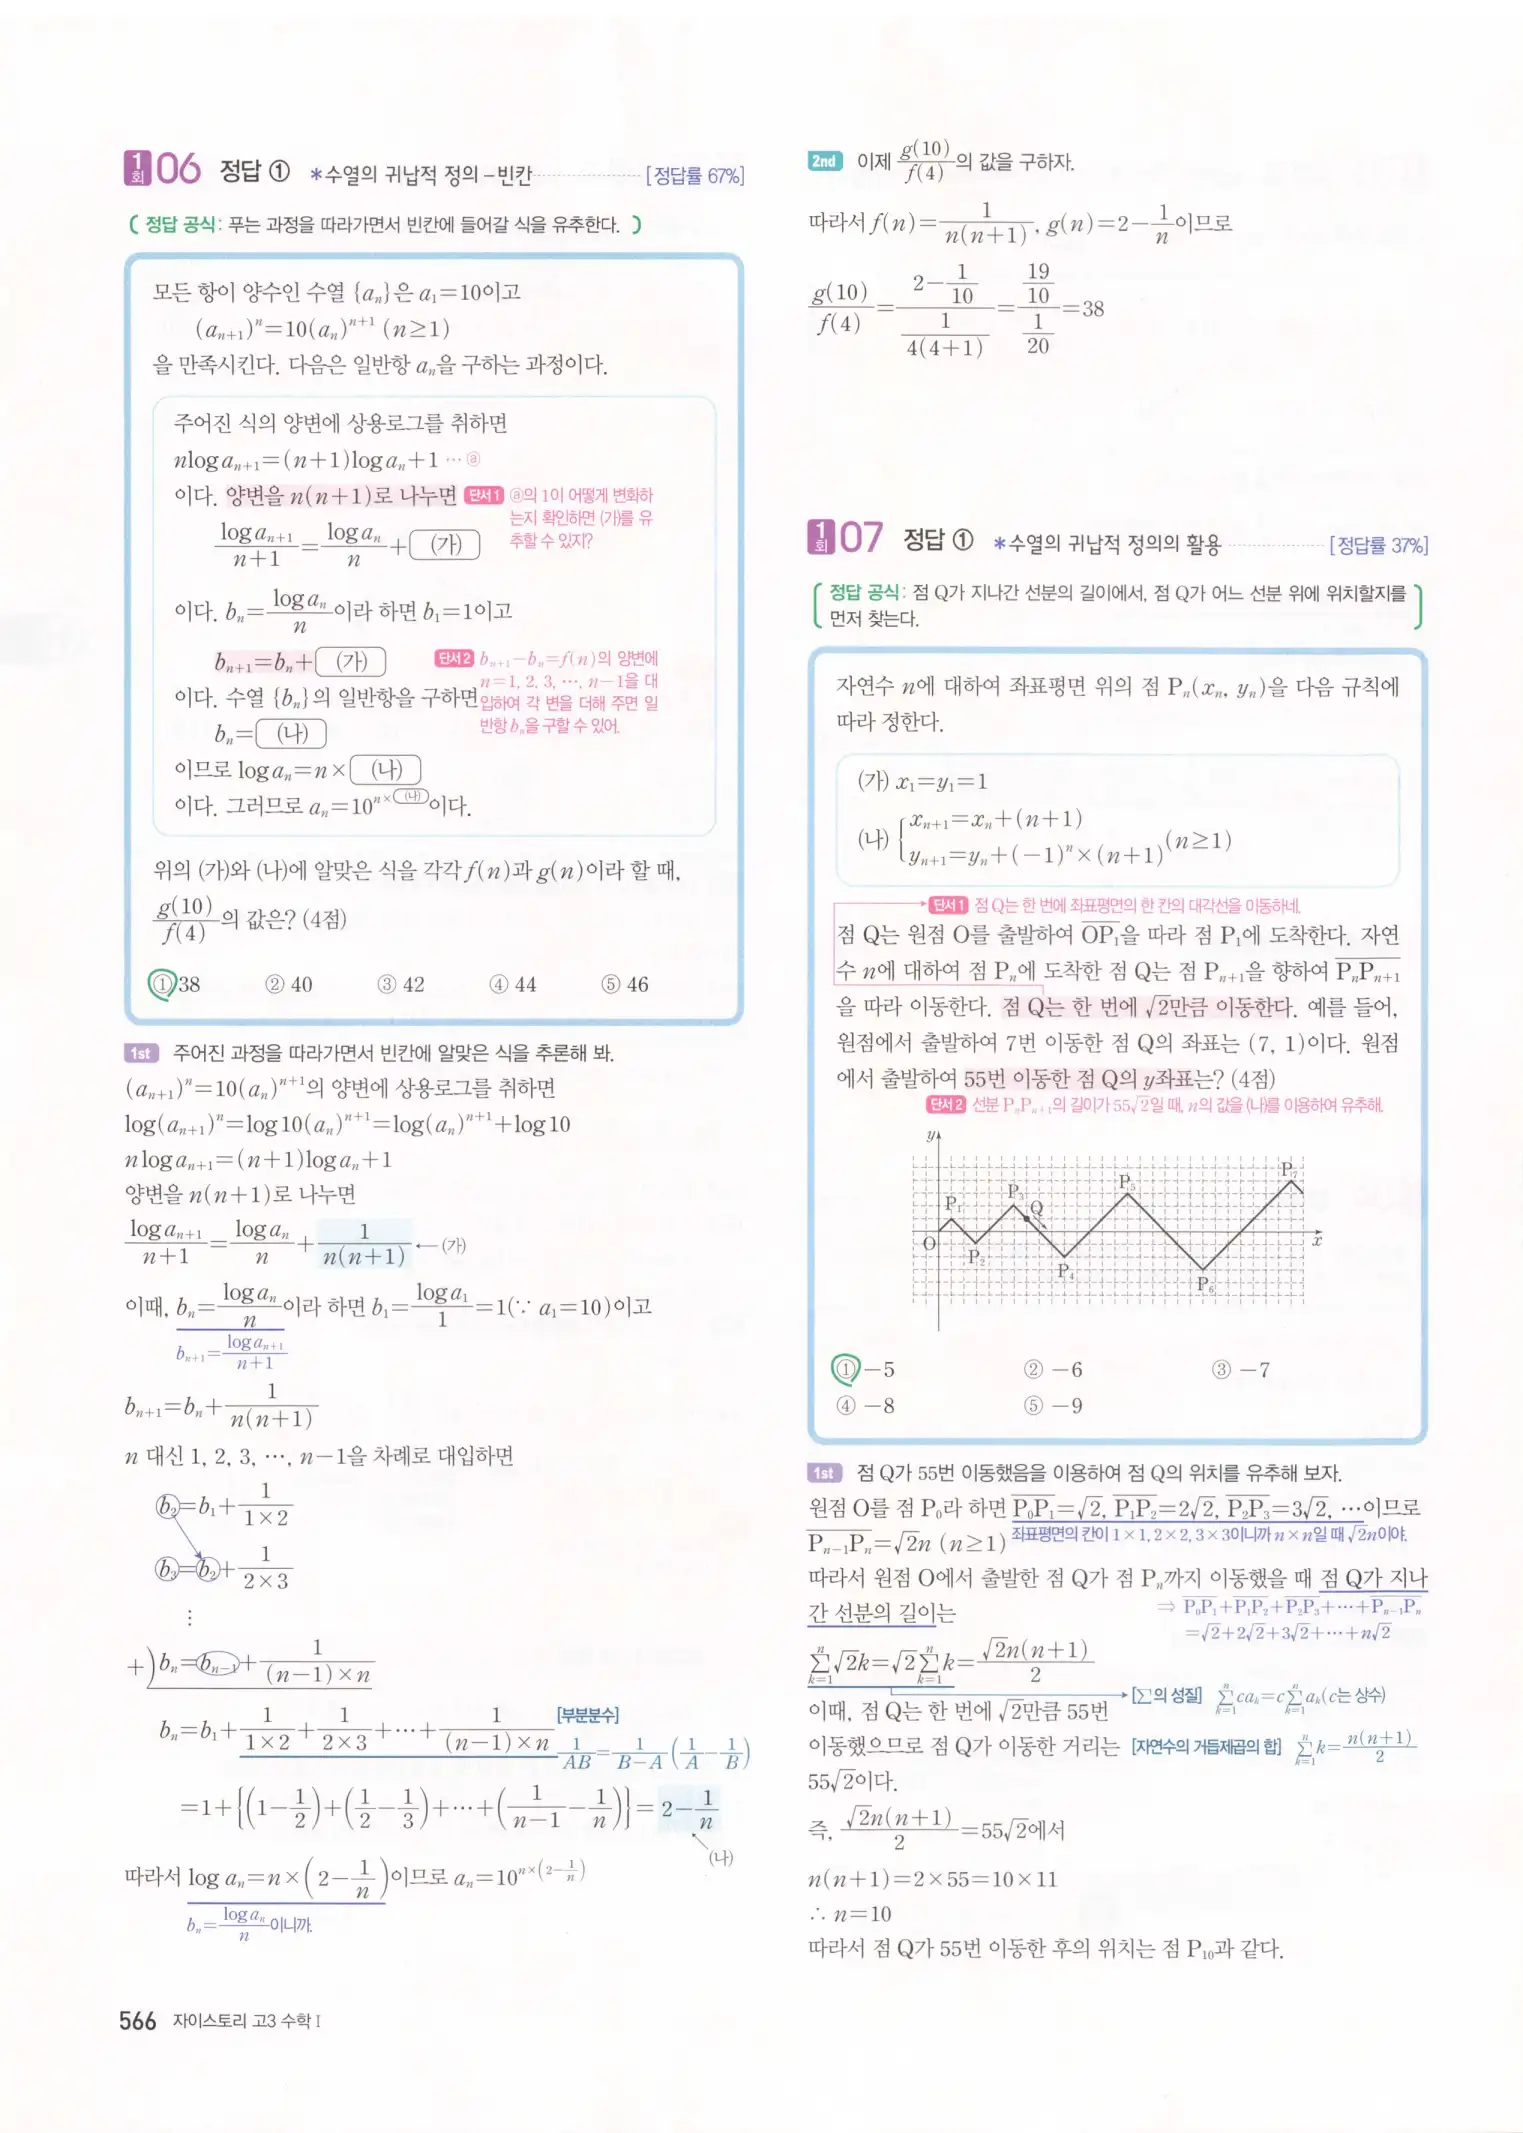 1회 06 정답 ① *수열의 귀납적 정의 – 빈칸 [정답률 67%]
( 정답 공식: 푸는 과정을 따라가면서 빈칸에 들어갈 식을 유추한다. )
모든 항이 양수인 수열 {aₙ}은 a₁=10이고
(aₙ₊₁)ⁿ=10(aₙ)ⁿ⁺¹ (n≥1)
을 만족시킨다. 다음은 일반항 aₙ을 구하는 과정이다.
주어진 식의 양변에 상용로그를 취하면
nlog aₙ₊₁=(n+1)log aₙ+1 … ⓐ
이다. 양변을 n(n+1)로 나누면 단서1 ⓐ의 1이 어떻게 변화하
는지 확인하면 (가)를 유
추할 수 있지?
log aₙ₊₁/(n+1) = log aₙ/n + (가)
이다. bₙ= log aₙ/n 이라 하면 b₁=1이고
bₙ₊₁=bₙ+ (가) 단서2 bₙ₊₁−bₙ=f(n)의 양변에
n=1, 2, 3, …, n−1을 대
이다. 수열 {bₙ}의 일반항을 구하면 입하여 각 변을 더해 주면 일
반항 bₙ을 구할 수 있어.
bₙ= (나)
이므로 log aₙ=n× (나)
이다. 그러므로 aₙ=10^(n×(나))이다.
위의 (가)와 (나)에 알맞은 식을 각각 f(n)과 g(n)이라 할 때,
g(10)/f(4)의 값은? (4점)
① 38 ② 40 ③ 42 ④ 44 ⑤ 46
1st 주어진 과정을 따라가면서 빈칸에 알맞은 식을 추론해 봐.
(aₙ₊₁)ⁿ=10(aₙ)ⁿ⁺¹의 양변에 상용로그를 취하면
log(aₙ₊₁)ⁿ=log10(aₙ)ⁿ⁺¹=log(aₙ)ⁿ⁺¹+log10
nlog aₙ₊₁=(n+1)log aₙ+1
양변을 n(n+1)로 나누면
log aₙ₊₁/(n+1) = log aₙ/n + 1/(n(n+1)) ←(가)
이때, bₙ= log aₙ/n 이라 하면 b₁= log a₁/1 =1(∵ a₁=10)이고
bₙ₊₁= log aₙ₊₁/(n+1)
bₙ₊₁=bₙ+ 1/(n(n+1))
n 대신 1, 2, 3, …, n−1을 차례로 대입하면
b₂=b₁+ 1/(1×2)
b₃=b₂+ 1/(2×3)
⋮
+) bₙ=bₙ₋₁+ 1/((n−1)×n)
bₙ=b₁+ 1/(1×2) + 1/(2×3) +…+ 1/((n−1)×n) [부분분수] 1/AB = 1/(B−A) (1/A − 1/B)
=1+{(1−1/2)+(1/2−1/3)+…+(1/(n−1)−1/n)}=2−1/n
(나)
따라서 log aₙ=n×(2−1/n)이므로 aₙ=10^(n×(2−1/n))
bₙ= log aₙ/n 이니까.
566 자이스토리 고3 수학 I
2nd 이제 g(10)/f(4)의 값을 구하자.
따라서 f(n)= 1/(n(n+1)), g(n)=2−1/n이므로
g(10)/f(4) = (2−1/10)/(1/(4(4+1))) = (19/10)/(1/20) =38
1회 07 정답 ① *수열의 귀납적 정의의 활용 [정답률 37%]
( 정답 공식: 점 Q가 지나간 선분의 길이에서, 점 Q가 어느 선분 위에 위치할지를
먼저 찾는다. )
자연수 n에 대하여 좌표평면 위의 점 Pₙ(xₙ, yₙ)을 다음 규칙에
따라 정한다.
(가) x₁=y₁=1
(나) { xₙ₊₁=xₙ+(n+1)
yₙ₊₁=yₙ+(−1)ⁿ×(n+1) (n≥1)
단서1 점 Q는 한 번에 좌표평면의 한 칸의 대각선을 이동하네.
점 Q는 원점 O를 출발하여 OP₁을 따라 점 P₁에 도착한다. 자연
수 n에 대하여 점 Pₙ에 도착한 점 Q는 점 Pₙ₊₁을 향하여 PₙPₙ₊₁
을 따라 이동한다. 점 Q는 한 번에 √2만큼 이동한다. 예를 들어,
원점에서 출발하여 7번 이동한 점 Q의 좌표는 (7, 1)이다. 원점
에서 출발하여 55번 이동한 점 Q의 y좌표는? (4점)
단서2 선분 PₙPₙ₊₁의 길이가 55√2일 때, n의 값을 (나)를 이용하여 유추해.
y
P₁ P₃ Q P₅ P₇
O x
P₂ P₄ P₆
① −5 ② −6 ③ −7
④ −8 ⑤ −9
1st 점 Q가 55번 이동했음을 이용하여 점 Q의 위치를 유추해 보자.
원점 O를 점 P₀라 하면 P₀P₁=√2, P₁P₂=2√2, P₂P₃=3√2, …이므로
Pₙ₋₁Pₙ=√2n (n≥1) 좌표평면의 칸이 1×1, 2×2, 3×3이니까 n×n일 때 √2n이야.
따라서 원점 O에서 출발한 점 Q가 점 Pₙ까지 이동했을 때 점 Q가 지나
간 선분의 길이는 ⇒ P₀P₁+P₁P₂+P₂P₃+…+Pₙ₋₁Pₙ
=√2+2√2+3√2+…+n√2
∑ₖ₌₁ⁿ √2k=√2∑ₖ₌₁ⁿ k= √2n(n+1)/2
이때, 점 Q는 한 번에 √2만큼 55번 [∑의 성질] ∑ₖ₌₁ⁿ caₖ=c∑ₖ₌₁ⁿ aₖ(c는 상수)
이동했으므로 점 Q가 이동한 거리는 [자연수의 거듭제곱의 합] ∑ₖ₌₁ⁿ k= n(n+1)/2
55√2이다.
즉, √2n(n+1)/2 =55√2에서
n(n+1)=2×55=10×11
∴ n=10
따라서 점 Q가 55번 이동한 후의 위치는 점 P₁₀과 같다.